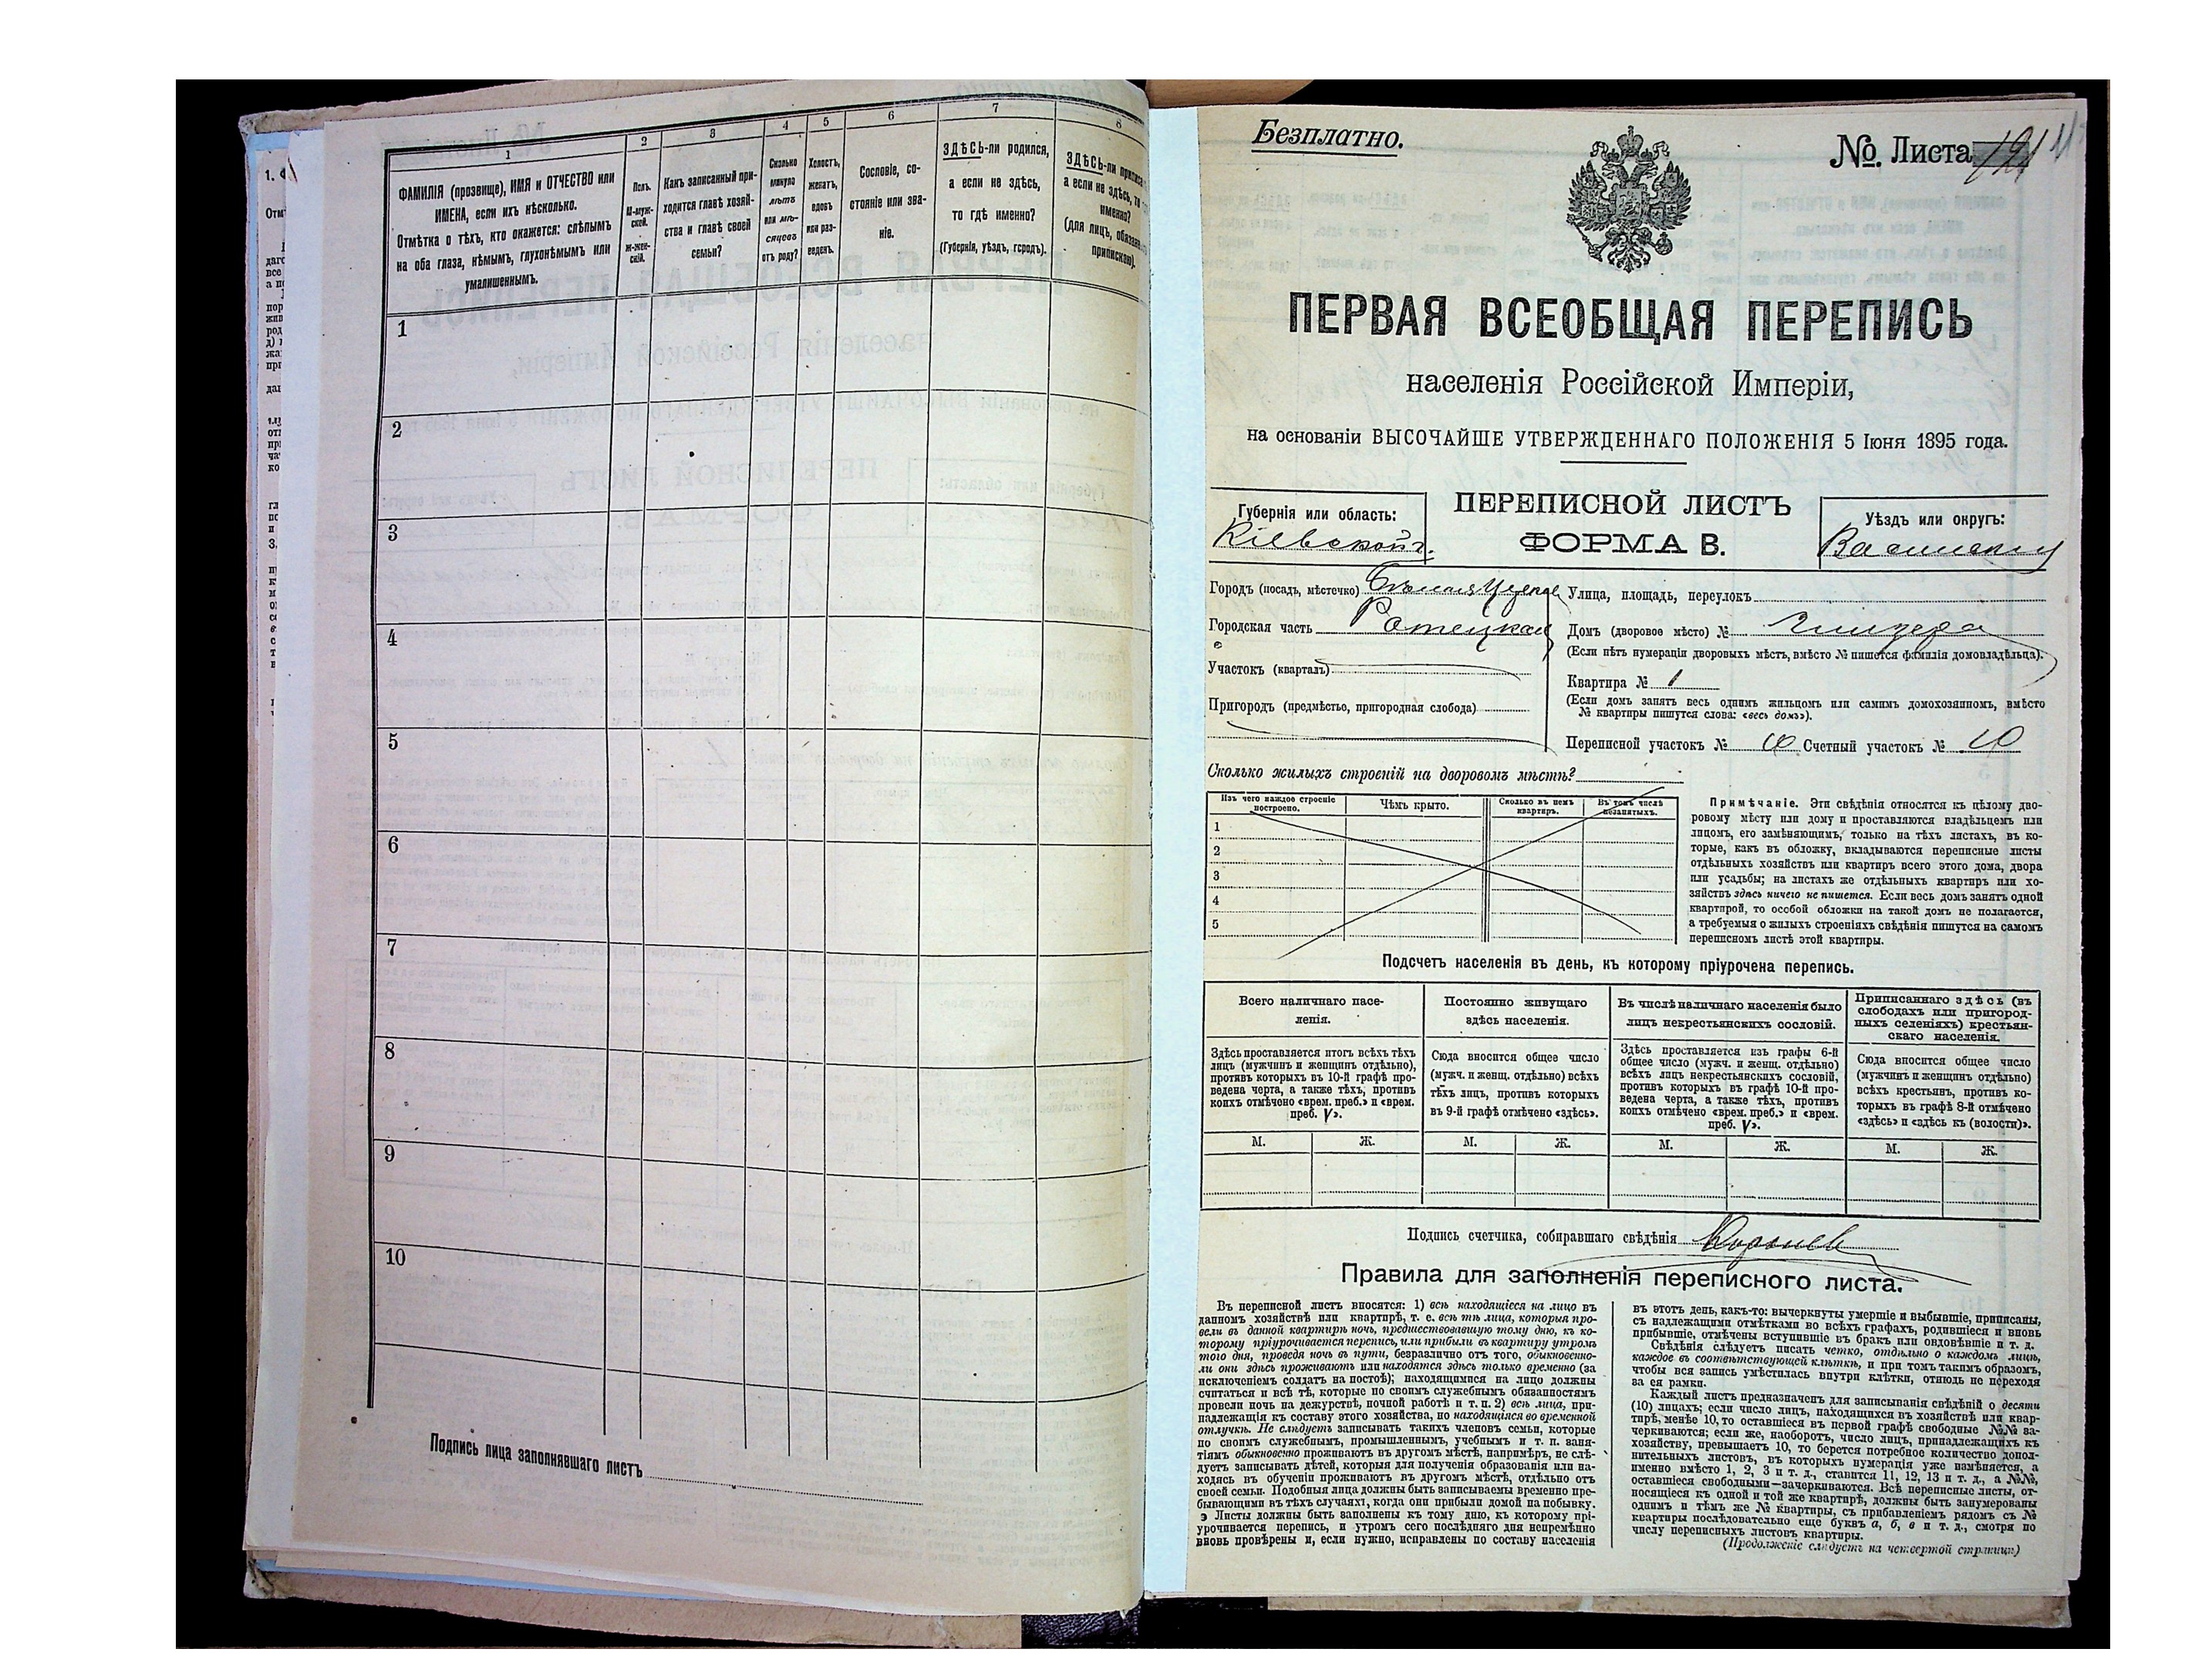 1
2
3
4
5
6
7
8
ФАМИЛІЯ (прозвище), ИМЯ и ОТЧЕСТВО или
ИМЕНА, если ихъ нѣсколько.
Отмѣтка о тѣхъ, кто окажется: слѣпымъ
на оба глаза, нѣмымъ, глухонѣмымъ или
умалишеннымъ.
Полъ.
М-муж-
ской.
Ж-жен-
скій.
Какъ записанный при-
ходится главѣ хозяй-
ства и главѣ своей
семьи?
Сколько
минуло
лѣтъ
или мѣ-
сяцевъ
отъ роду?
Холостъ,
женатъ,
вдовъ
или раз-
веденъ.
Сословіе, со-
стояніе или зва-
ніе.
ЗДѢСЬ-ли родился,
а если не здѣсь,
то гдѣ именно?
(Губернія, уѣздъ, городъ).
ЗДѢСЬ-ли
а если не здѣсь,
именно?
(для лицъ,
припискою).
1
2
3
4
5
6
7
8
9
10
Подпись лица заполнявшаго листъ
Безплатно.
№. Листа
ПЕРВАЯ ВСЕОБЩАЯ ПЕРЕПИСЬ
населенія Россійской Имперіи,
на основаніи ВЫСОЧАЙШЕ УТВЕРЖДЕННАГО ПОЛОЖЕНІЯ 5 Іюня 1895 года.
Губернія или область:
Кіевской г.
ПЕРЕПИСНОЙ ЛИСТЪ
ФОРМА В.
Уѣздъ или округъ:
Городъ (посадъ, мѣстечко) Бѣлая Церковь
Городская часть
Участокъ (кварталъ)
Пригородъ (предмѣстье, пригородная слобода)
Улица, площадь, переулокъ
Домъ (дворовое мѣсто) №
(Если нѣтъ нумераціи дворовыхъ мѣстъ, вмѣсто № пишется фамилія домовладѣльца).
Квартира № 1
(Если домъ занятъ весь однимъ жильцомъ или самимъ домохозяиномъ, вмѣсто
№ квартиры пишутся слова: «весь домъ»).
Переписной участокъ № Счетный участокъ №
Сколько жилыхъ строеній на дворовомъ мѣстѣ?
Изъ чего каждое строеніе
построено.
Чѣмъ крыто.
Сколько въ немъ
квартиръ.
Въ томъ числѣ
незанятыхъ.
1
2
3
4
5
Примѣчаніе. Эти свѣдѣнія относятся къ цѣлому дво-
ровому мѣсту или дому и проставляются владѣльцемъ или
лицомъ, его замѣняющимъ, только на тѣхъ листахъ, въ ко-
торые, какъ въ обложку, вкладываются переписные листы
отдѣльныхъ хозяйствъ или квартиръ всего этого дома, двора
или усадьбы; на листахъ же отдѣльныхъ квартиръ или хо-
зяйствъ здѣсь ничего не пишется. Если весь домъ занятъ одной
квартирой, то особой обложки на такой домъ не полагается,
а требуемыя о жилыхъ строеніяхъ свѣдѣнія пишутся на самомъ
переписномъ листѣ этой квартиры.
Подсчетъ населенія въ день, къ которому пріурочена перепись.
Всего наличнаго насе-
ленія.
Здѣсь проставляется итогъ всѣхъ тѣхъ
лицъ (мужчинъ и женщинъ отдѣльно),
противъ которыхъ въ 10-й графѣ про-
ведена черта, а также тѣхъ, противъ
коихъ отмѣчено «врем. преб.» и «врем.
преб. V».
М. Ж.
Постоянно живущаго
здѣсь населенія.
Сюда вносится общее число
(мужч. и женщ. отдѣльно) всѣхъ
тѣхъ лицъ, противъ которыхъ
въ 9-й графѣ отмѣчено «здѣсь».
М. Ж.
Въ числѣ наличнаго населенія было
лицъ некрестьянскихъ сословій.
Здѣсь проставляется изъ графы 6-й
общее число (мужч. и женщ. отдѣльно)
всѣхъ лицъ некрестьянскихъ сословій,
противъ которыхъ въ графѣ 10-й про-
ведена черта, а также тѣхъ, противъ
коихъ отмѣчено «врем. преб.» и «врем.
преб. V».
М. Ж.
Приписаннаго здѣсь (въ
слободахъ или пригород-
ныхъ селеніяхъ) крестьян-
скаго населенія.
Сюда вносится общее число
(мужчинъ и женщинъ отдѣльно)
всѣхъ крестьян, противъ ко-
торыхъ въ графѣ 8-й отмѣчено
«здѣсь» и «здѣсь къ (волости)».
М. Ж.
Подпись счетчика, собиравшаго свѣдѣнія
Правила для заполненія переписного листа.
Въ переписной листъ вносятся: 1) всѣ находящіеся на лицо въ
данномъ хозяйствѣ или квартирѣ, т. е. всѣ тѣ лица, которыя про-
вели въ данной квартирѣ ночь, предшествовавшую тому дню, къ ко-
торому пріурочивается перепись, или прибыли въ квартиру утромъ
того дня, проведя ночь въ пути, безразлично отъ того, обыкновенно-
ли они здѣсь проживаютъ или находятся здѣсь только временно (за
исключеніемъ солдатъ на постоѣ); находящимися на лицо должны
считаться и всѣ тѣ, которые по своимъ служебнымъ обязанностямъ
провели ночь на дежурствѣ, ночной работѣ и т. п. 2) всѣ лица, при-
надлежащія къ составу этого хозяйства, но находящіяся во временной
отлучкѣ. Не слѣдуетъ записывать такихъ членовъ семьи, которые
по своимъ служебнымъ, промышленнымъ, учебнымъ и т. п. заня-
тіямъ обыкновенно проживаютъ въ другомъ мѣстѣ, напримѣръ, не слѣ-
дуетъ записывать дѣтей, которыя для полученія образованія или на-
ходясь въ обученіи проживаютъ въ другомъ мѣстѣ, отдѣльно отъ
своей семьи. Подобныя лица должны быть записываемы временно пре-
бывающими въ тѣхъ случаяхъ, когда они прибыли домой на побывку.
Листы должны быть заполнены къ тому дню, къ которому прі-
урочивается перепись, и утромъ сего послѣдняго дня непремѣнно
вновь провѣрены и, если нужно, исправлены по составу населенія
въ этотъ день, какъ-то: вычеркнуты умершіе и выбывшіе, приписаны,
съ надлежащими отмѣтками во всѣхъ графахъ, родившіеся и вновь
прибывшіе, отмѣчены вступившіе въ бракъ или овдовѣвшіе и т. д.
Свѣдѣнія слѣдуетъ писать четко, отдѣльно о каждомъ лицѣ,
каждое въ соотвѣтствующей клѣткѣ, и при томъ такимъ образомъ,
чтобы вся запись умѣстилась внутри клѣтки, отнюдь не переходя
за ея рамки.
Каждый листъ предназначенъ для записыванія свѣдѣній о десяти
(10) лицахъ; если число лицъ, находящихся въ хозяйствѣ или квар-
тирѣ, менѣе 10, то оставшіеся въ первой графѣ свободные №№ за-
черкиваются; если же, наоборотъ, число лицъ, принадлежащихъ къ
хозяйству, превышаетъ 10, то берется потребное количество допол-
нительныхъ листовъ, въ которыхъ нумерація уже измѣняется, а
именно вмѣсто 1, 2, 3 и т. д., ставится 11, 12, 13 и т. д., а №№,
оставшіеся свободными—зачеркиваются. Всѣ переписные листы, от-
носящіеся къ одной и той же квартирѣ, должны быть занумерованы
однимъ и тѣмъ же № квартиры, съ прибавленіемъ рядомъ съ №
квартиры послѣдовательно еще буквъ а, б, в и т. д., смотря по
числу переписныхъ листовъ квартиры.
(Продолженіе слѣдуетъ на четвертой страницѣ)